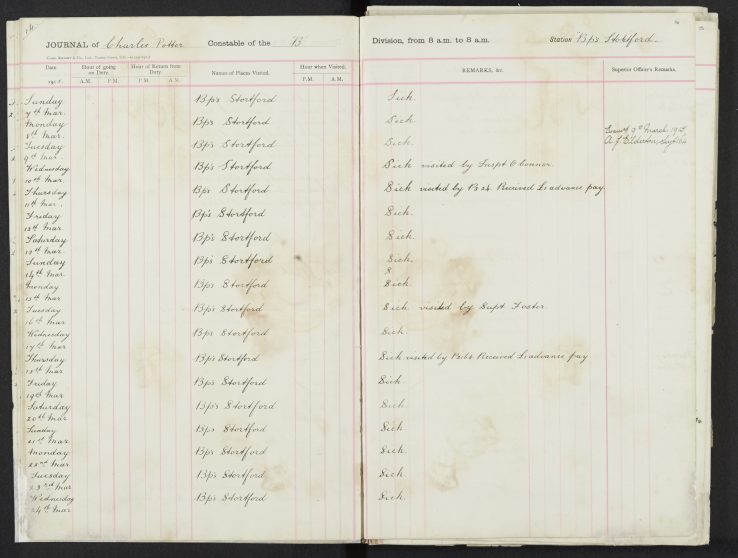 JOURNAL of Charles Potter Constable of the B Division, from 8 a.m. to 8 a.m. Station Bp's Stortford
Date Hour of going on Duty. Hour of Return from Duty. Names of Places Visited. Hour when Visited. REMARKS, &c. Superior Officer's Remarks.
A.M. P.M. P.M. A.M. P.M. A.M.
Sunday Bp's Stortford Sick
7th Mar.
Monday Bp's Stortford Sick.
8th Mar.
Tuesday Bp's Stortford Sick. 9th March 1915
9th Mar.
Wednesday Bp's Stortford Sick visited by Inspt O'Connor.
10th Mar.
Thursday Bp's Stortford Sick visited by Received advance pay.
11th Mar.
Friday Bp's Stortford Sick.
12th Mar.
Saturday Bp's Stortford Sick.
13th Mar.
Sunday Bp's Stortford Sick.
14th Mar. S
Monday Bp's Stortford Sick
15th Mar
Tuesday Bp's Stortford Sick visited by Supt Foster.
16th Mar
Wednesday Bp's Stortford Sick.
17th Mar
Thursday Bp's Stortford Sick visited by Received advance pay
18th Mar
Friday Bp's Stortford Sick.
19th Mar
Saturday Bp's Stortford Sick.
20th Mar
Sunday Bp's Stortford Sick.
21st Mar
Monday Bp's Stortford Sick.
22nd Mar
Tuesday Bp's Stortford Sick.
23rd Mar
Wednesday Bp's Stortford Sick.
24th Mar